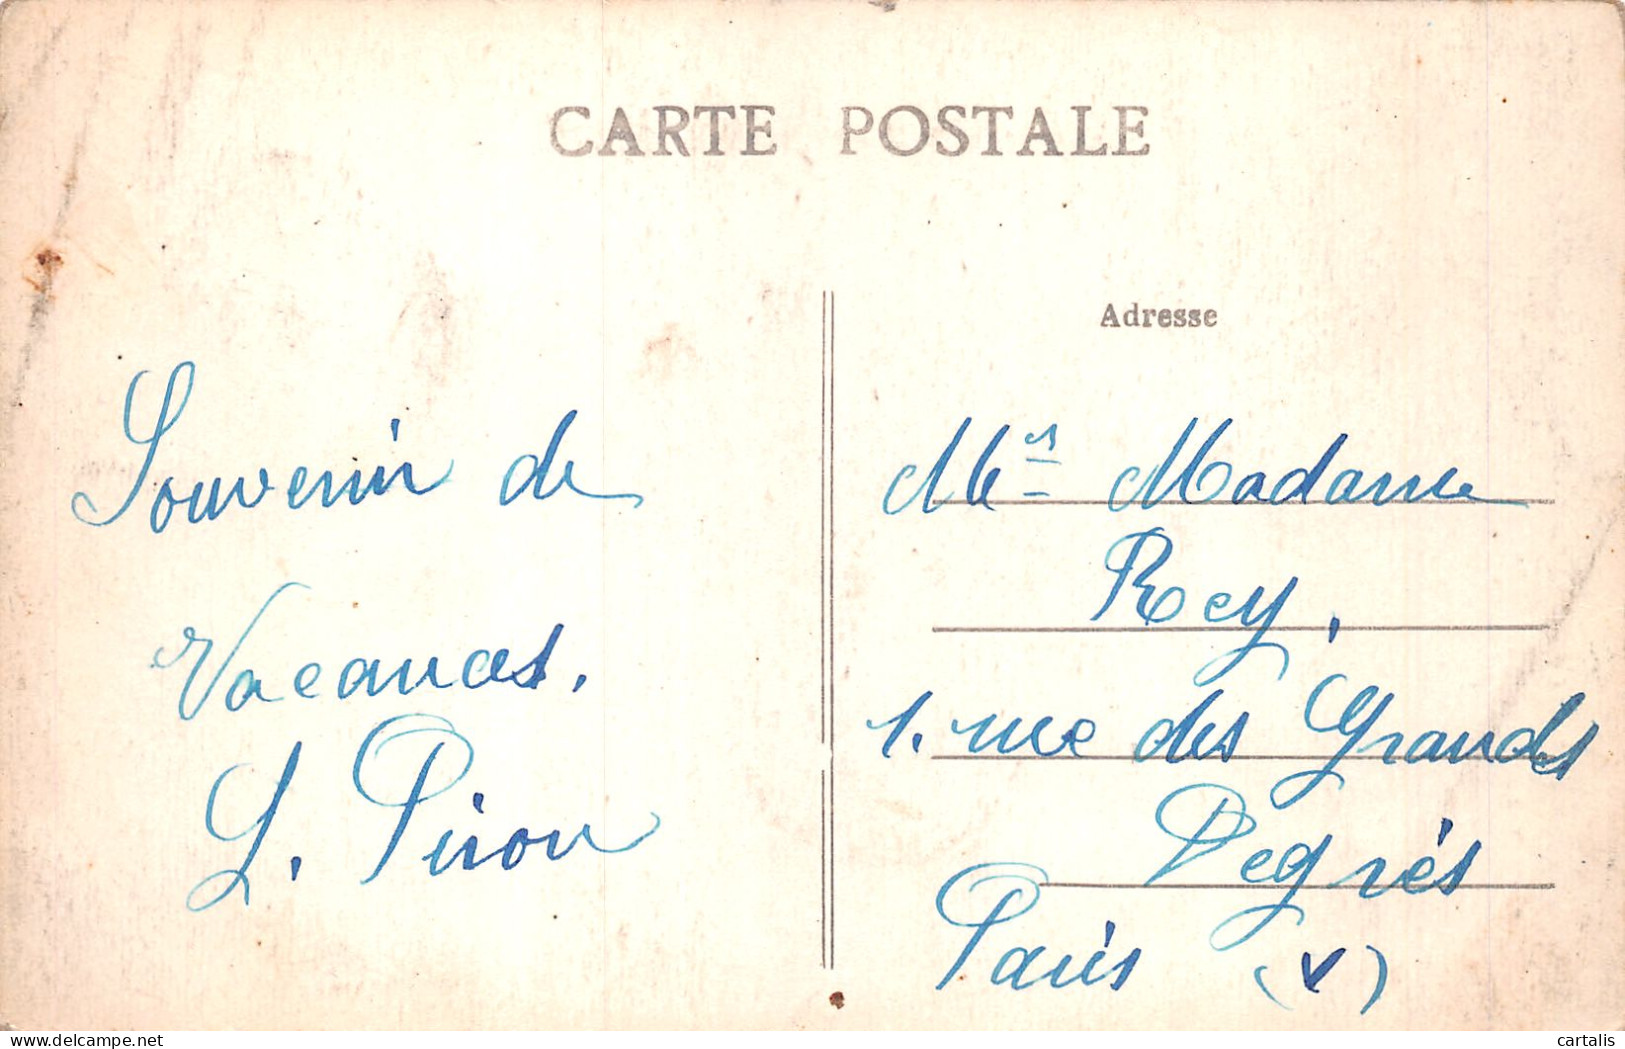 CARTE POSTALE
Souvenir de
Vacances.
L. Piron
Adresse
Mr Madame
Rey,
1. rue des Grands
Degrés
Paris (V)
cartalis